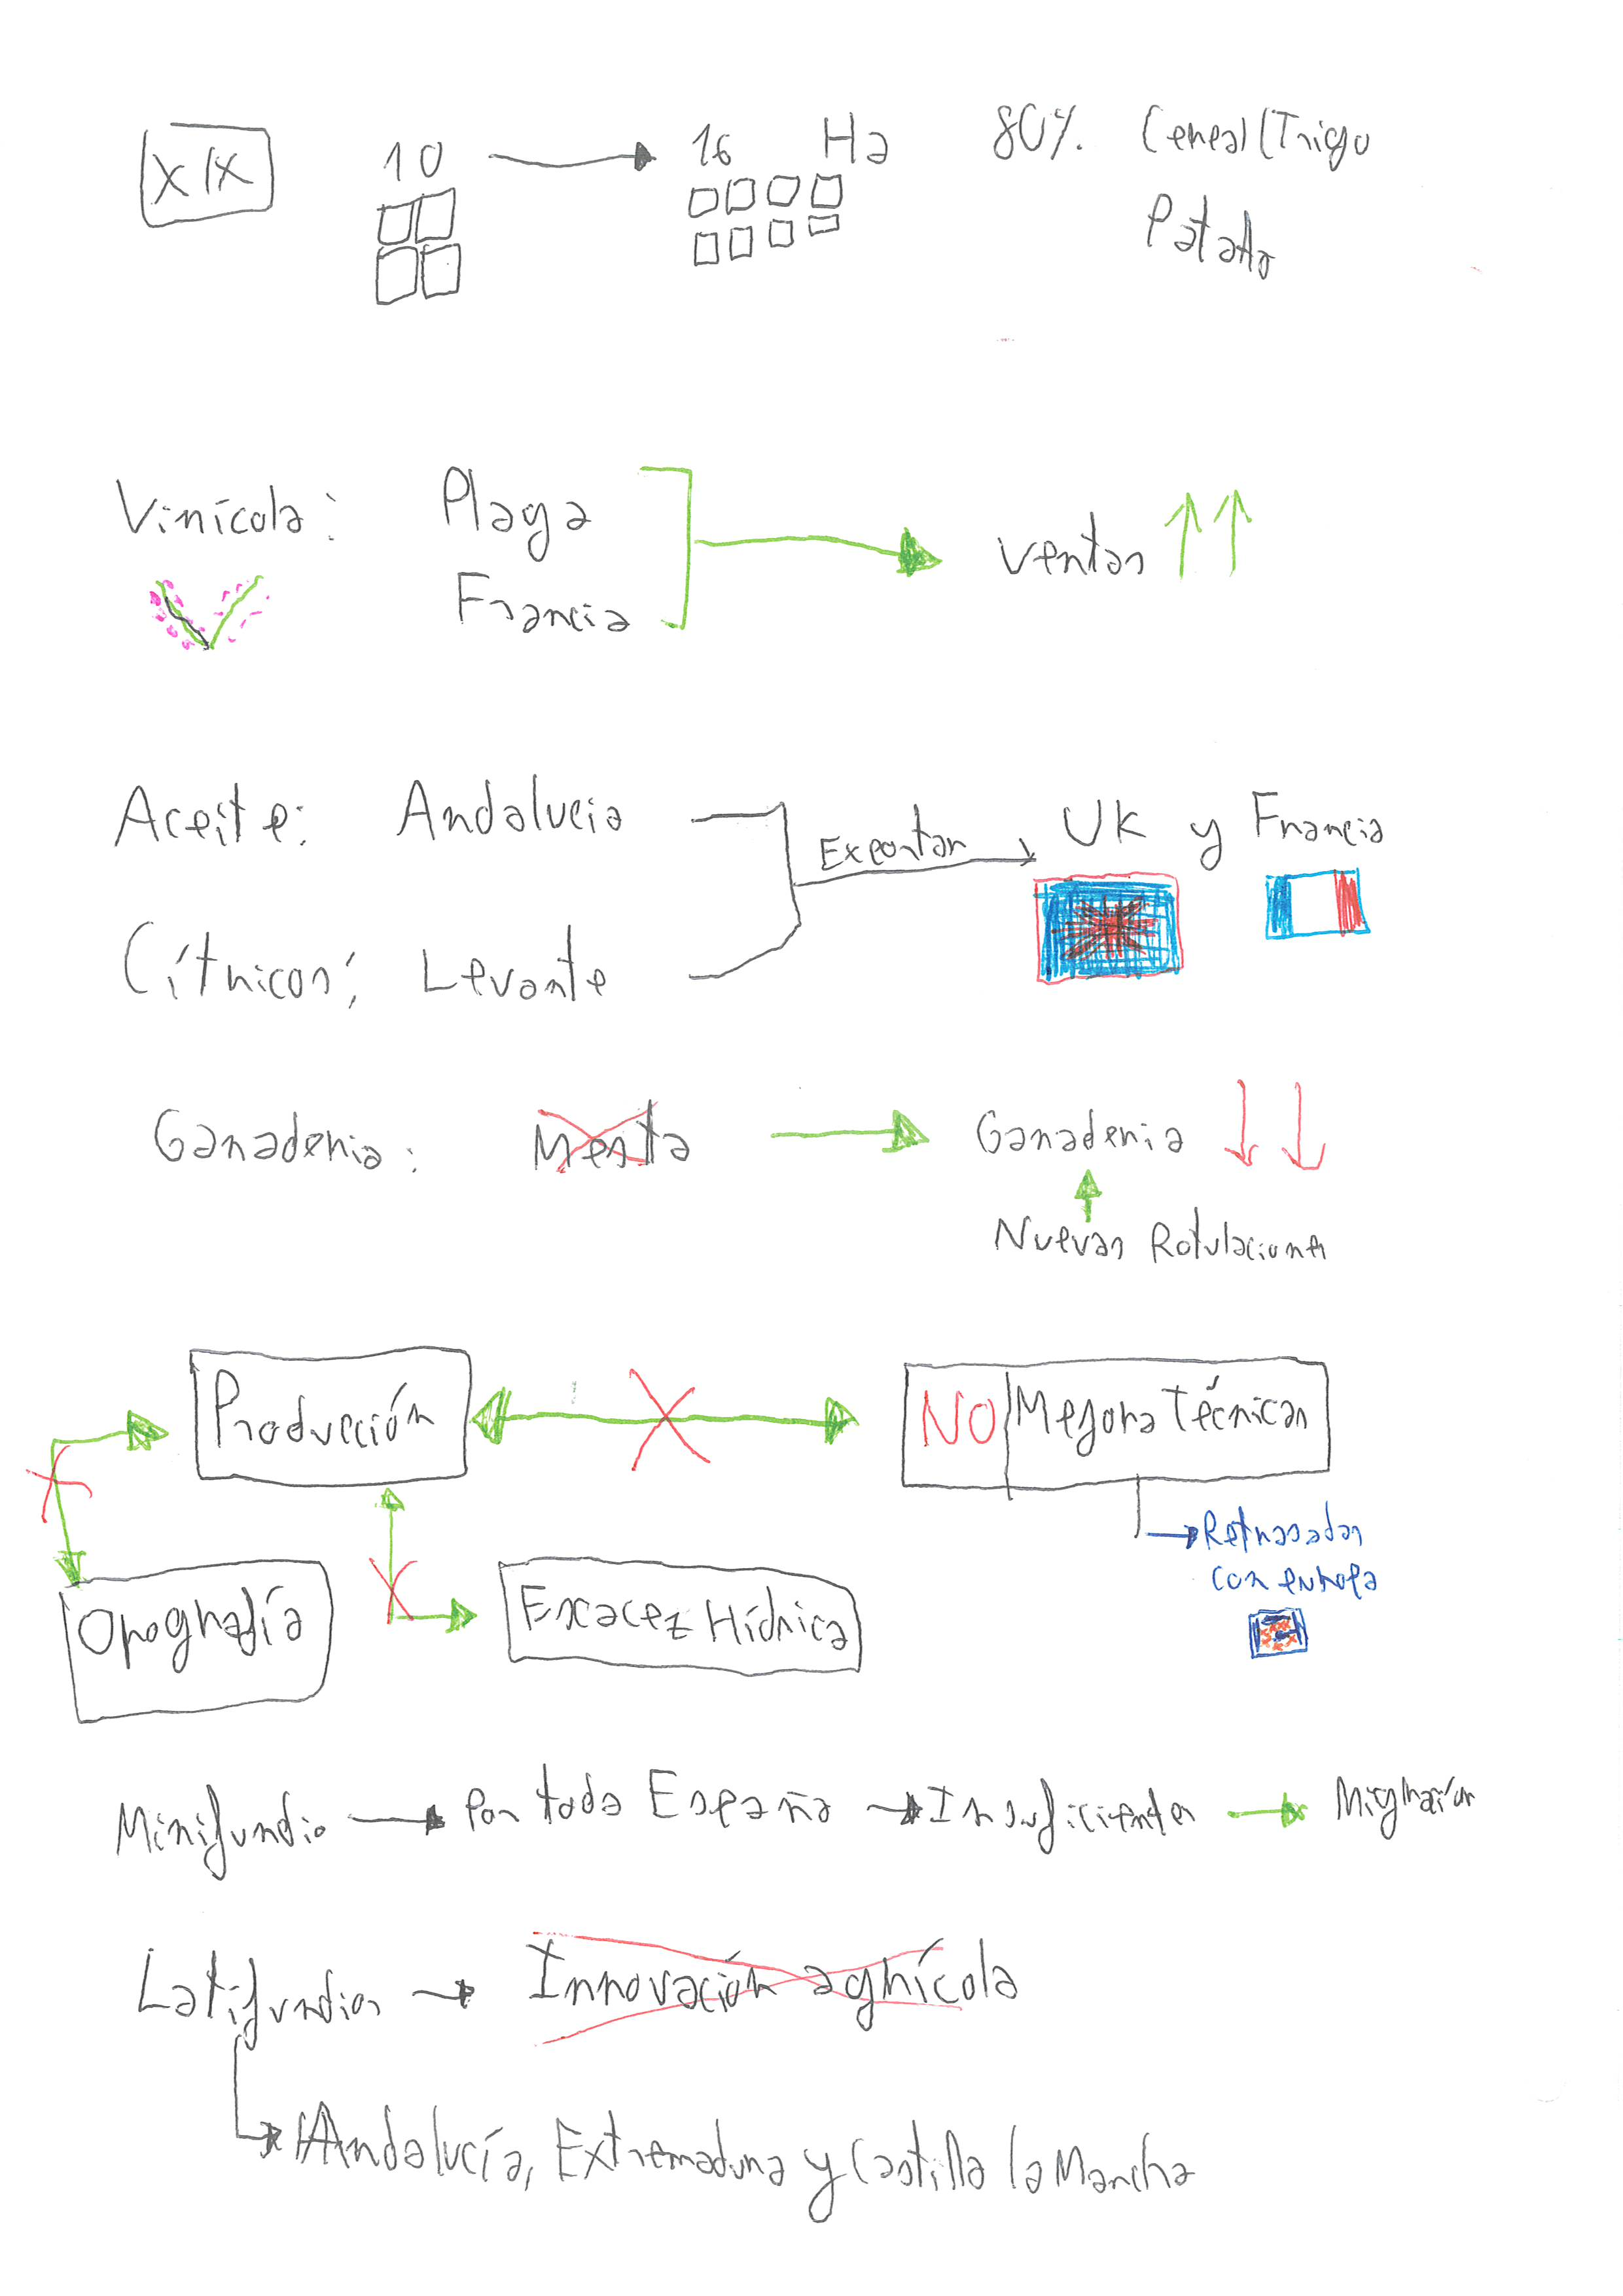 XIX 10 16 Ha 80% Cereal (Trigo
Patata
Vinícola: Plaga
Francia
Ventas
Aceite: Andalucia
Exportar
UK y Francia
Cítricos: Levante
Ganaderia: Mesta Ganaderia
Nuevas Rotulaciones
Producción NO Mejora Técnicas
Retrasados
con europa
Orografía Excacez Hídrica
Minifundio Por toda España Insuficientes Migración
Latifundios Innovación agrícola
Andalucía, Extremadura y Castilla la Mancha